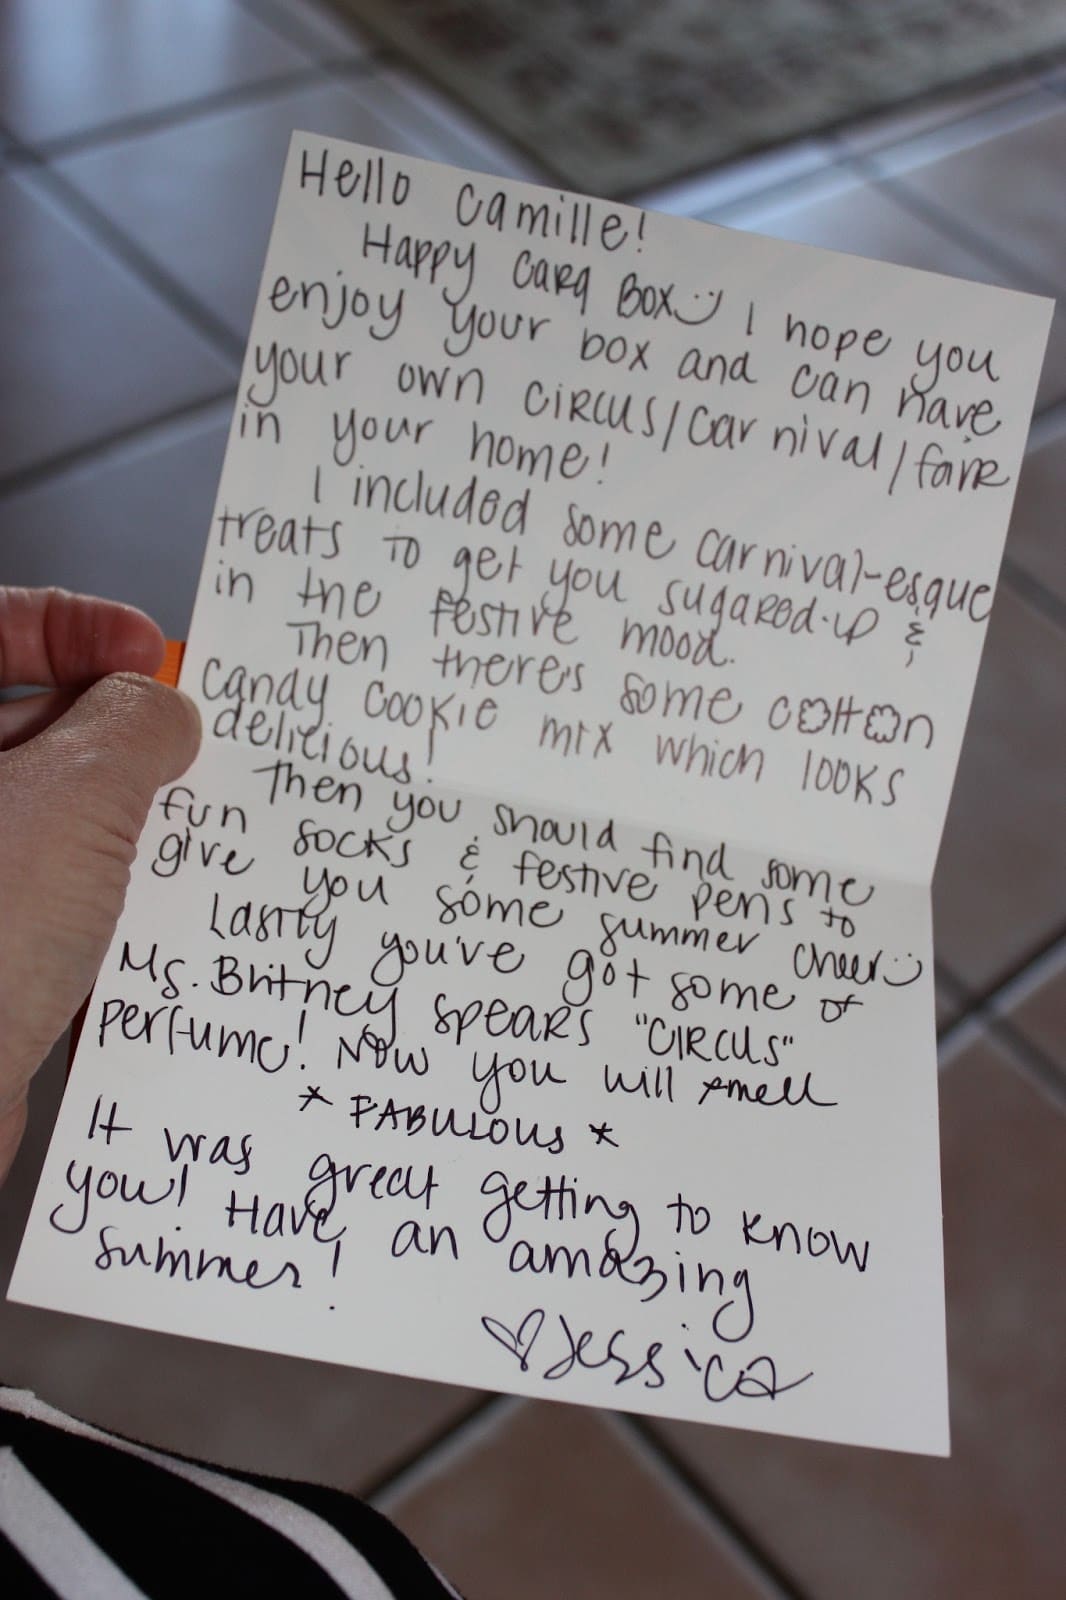 Hello Camille!
Happy Cara Box :) I hope you
enjoy your box and can have
your own circus/carnival/fair
in your home!
I included some carnival-esque
treats to get you sugared-up &
in the festive mood.
Then there's some cotton
candy cookie mix which looks
delicious!
Then you should find some
fun socks & festive pens to
give you some summer cheer :)
Lastly you've got some of
Ms. Britney Spears "CIRCUS"
perfume! Now you will smell
* FABULOUS *
It was great getting to know
you! Have an amazing
summer!
♡Jessica